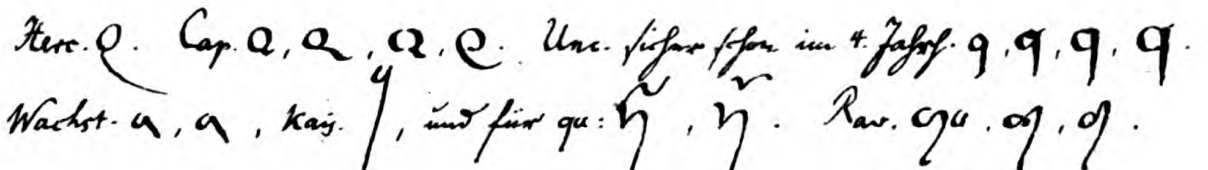 Herc. Q. Cap. Q, Q, Q, Q. Unc. sicher schon im 4. Jahrh. q, q, q, q.
Wachst. q, q, Kais. q, und für qu: q̃, q̃. Rav. qu, q, q.